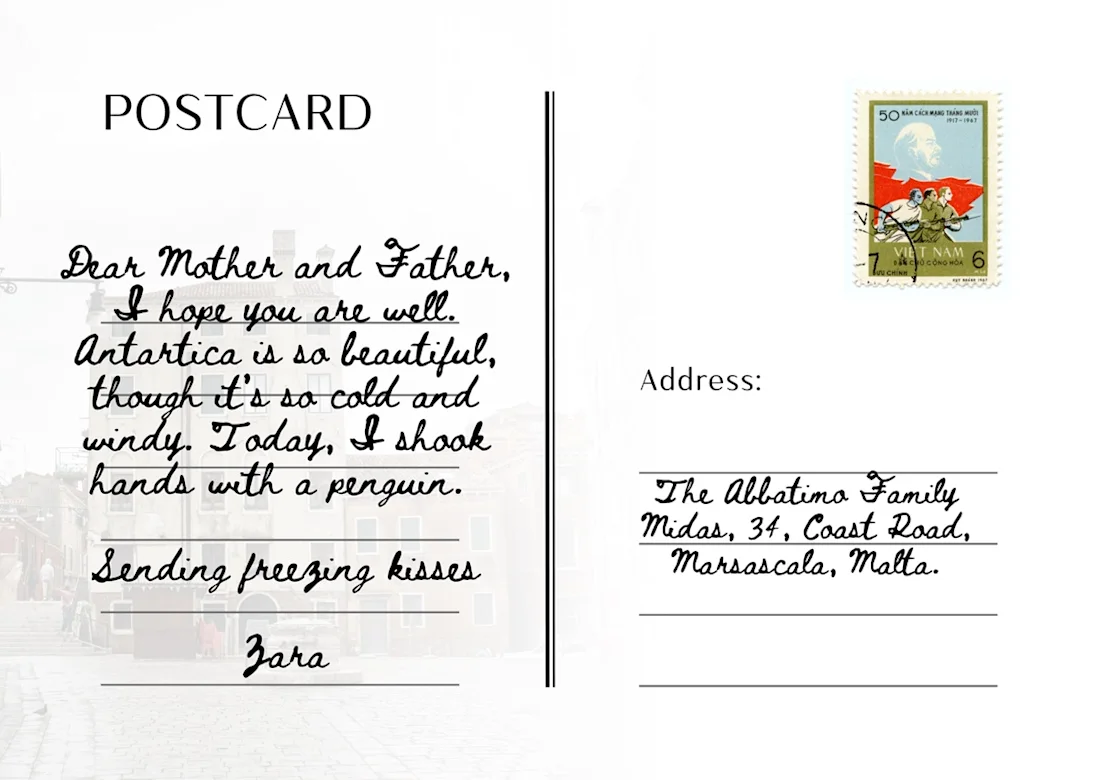 POSTCARD
Dear Mother and Father,
I hope you are well.
Antartica is so beautiful,
though it's so cold and
windy. Today, I shook
hands with a penguin.
Sending freezing kisses
Zara
50 NĂM CÁCH MẠNG THÁNG MƯỜI
1917-1967
VIỆT NAM
DÂN CHỦ CỘNG HÒA
BƯU CHÍNH
6
Address:
The Abbatimo Family
Midas, 34, Coast Road,
Marsascala, Malta.